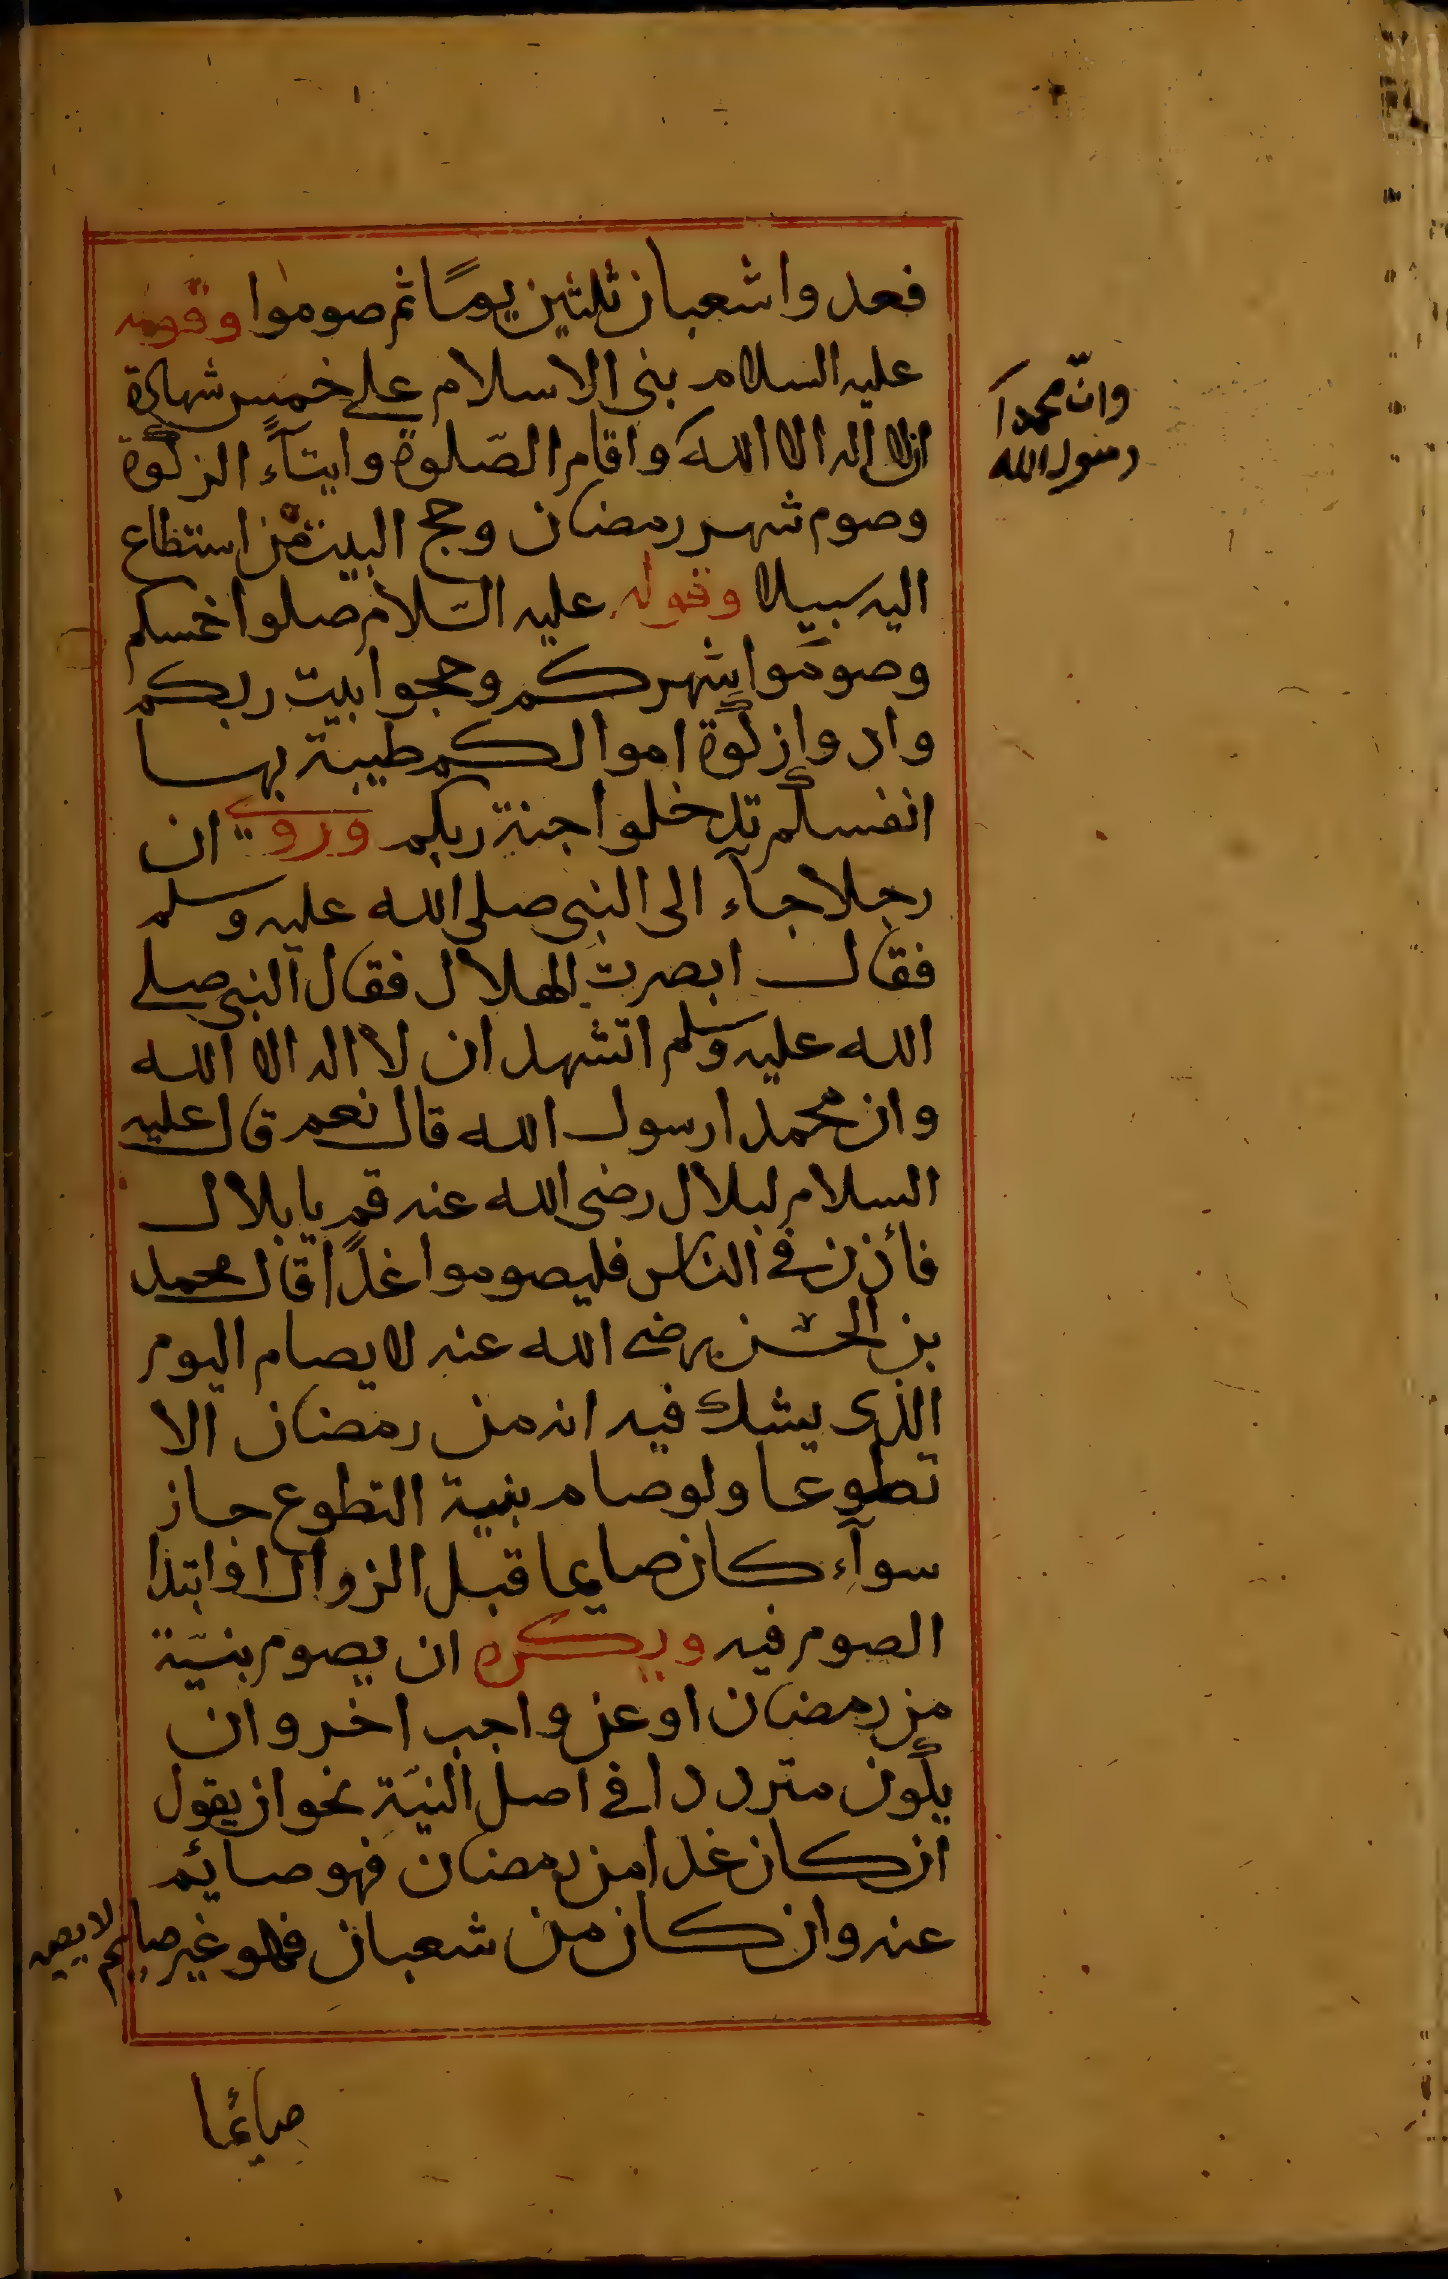 فعدوا شعبان ثلثين يومًا ثم صوموا وقوله
عليه السلام بنى الاسلام على خمس شهادة
ان لا اله الا الله واقام الصّلوة وايتآء الزكوة
وصوم شهر رمضان وحج البيت من استطاع
اليه سبيلا وقوله عليه السّلام صلوا خمسكم
وصوموا شهركم وحجوا بيت ربكم
وادوا زكوة اموالكم طيبة بها
انفسكم تدخلوا جنة ربكم وروى ان
رجلا جآء الى النبى صلى الله عليه وسلم
فقال ابصرت الهلال فقال النبى صلى
الله عليه وسلم اتشهد ان لا اله الا الله
وان محمدا رسول الله قال نعم قال عليه
السلام لبلال رضى الله عنه قم يا بلال
فأذن فى الناس فليصوموا غدًا قال محمد
بن الحسن رضى الله عنه لا يصام اليوم
الذى يشك فيه انه من رمضان الا
تطوعا ولو صام بنية التطوع جاز
سوآء كان صايما قبل الزوال او ابتدا
الصوم فيه ويكره ان يصوم بنيّة
من رمضان او عن واجب اخر وان
يكون مترددا فى اصل النيّة نحو ان يقول
ان كان غدا من رمضان فهو صائم
عنه وان كان من شعبان فهو غير صايم لا يصير
صائما
وانّ محمدا
رسول الله